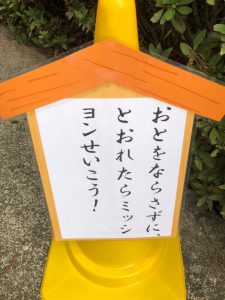 おとをならさずに、
とおれたらミッシ
ヨンせいこう！